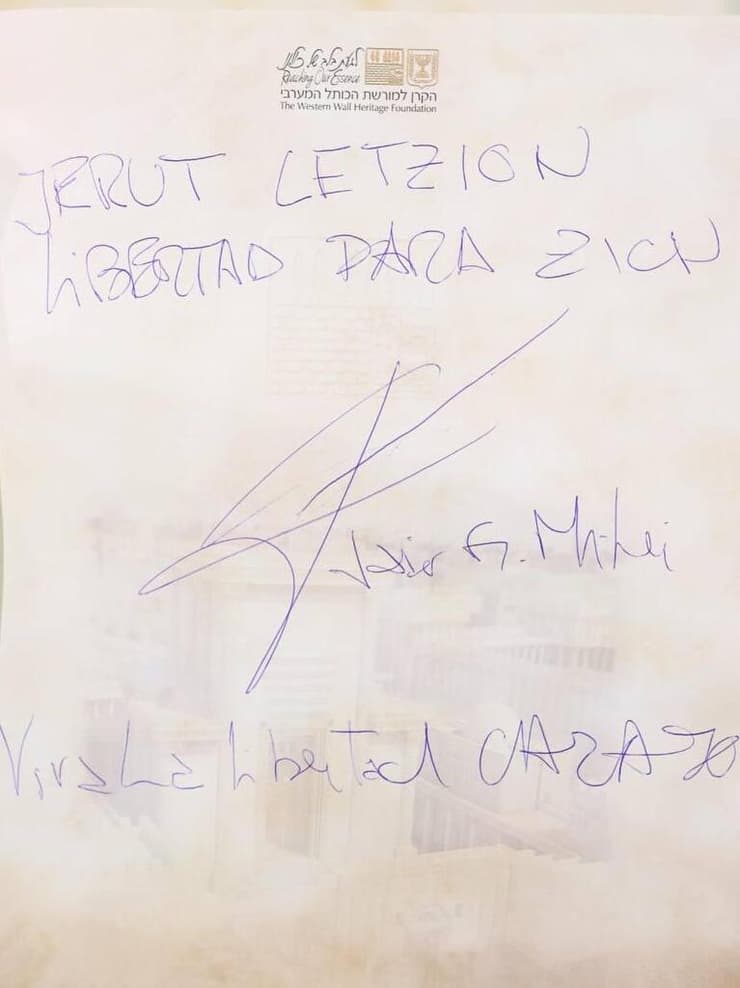 לגעת בלב של כולנו
Reaching Our Essence
הקרן למורשת הכותל המערבי
The Western Wall Heritage Foundation
JERUT LETZION
LiBERTAD PARA ZION
Javier G. Milei
Viva La Libertad CARAJO